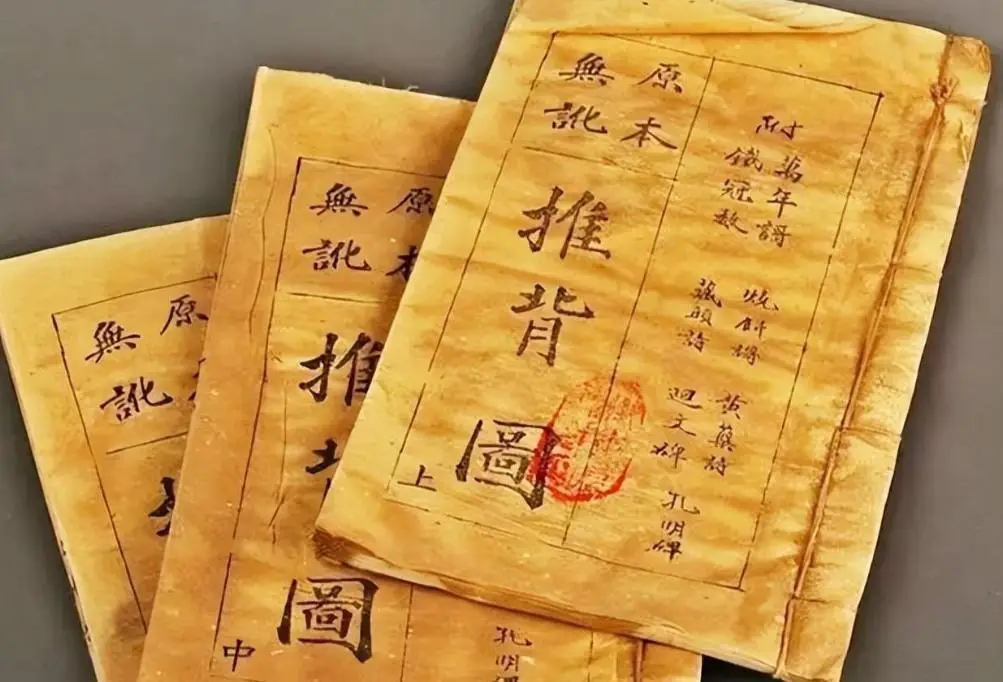 附
萬年謌
鐵冠數
燒餅謌
藏頭詩
黃蘗詩
迴文碑
孔明碑
原本
無訛
推背圖
上
原本
無訛
推
圖
中
孔明
原
無訛